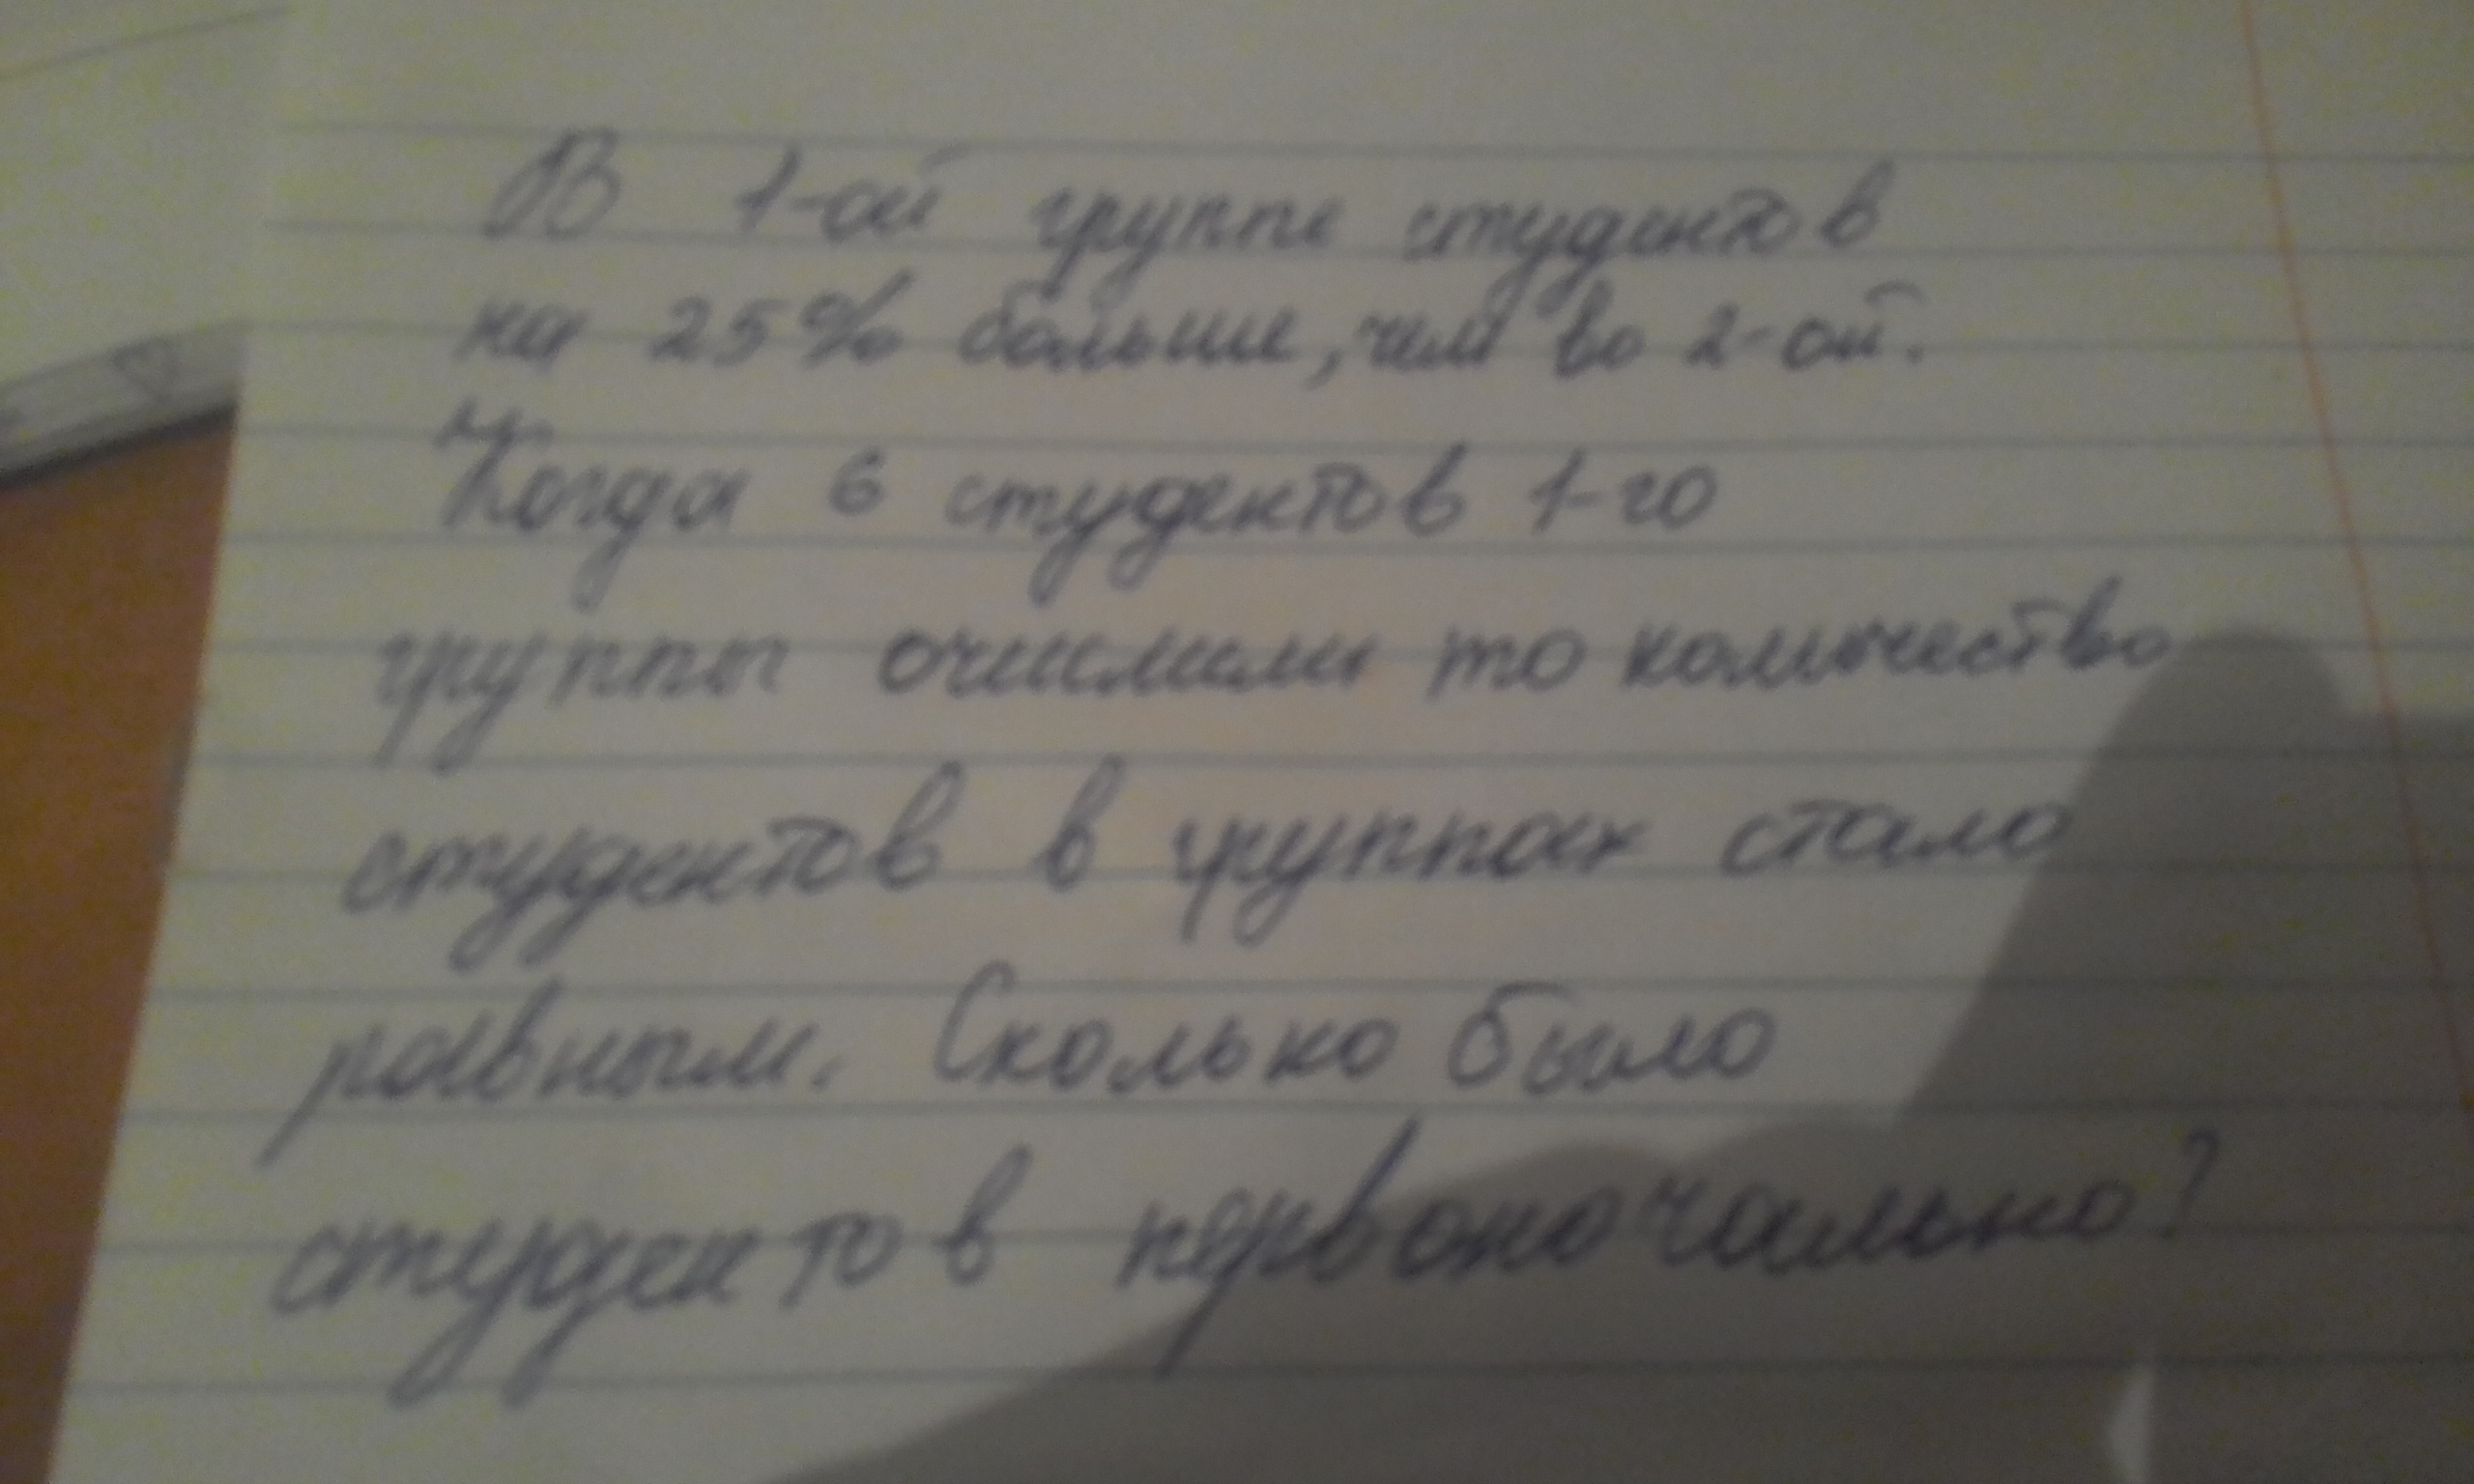 В 1-ой группе студентов
на 25% больше, чем во 2-ой.
Когда 6 студентов 1-го
группы очислили то количество
студентов в группах стало
равным. Сколько было
студентов первоначально?